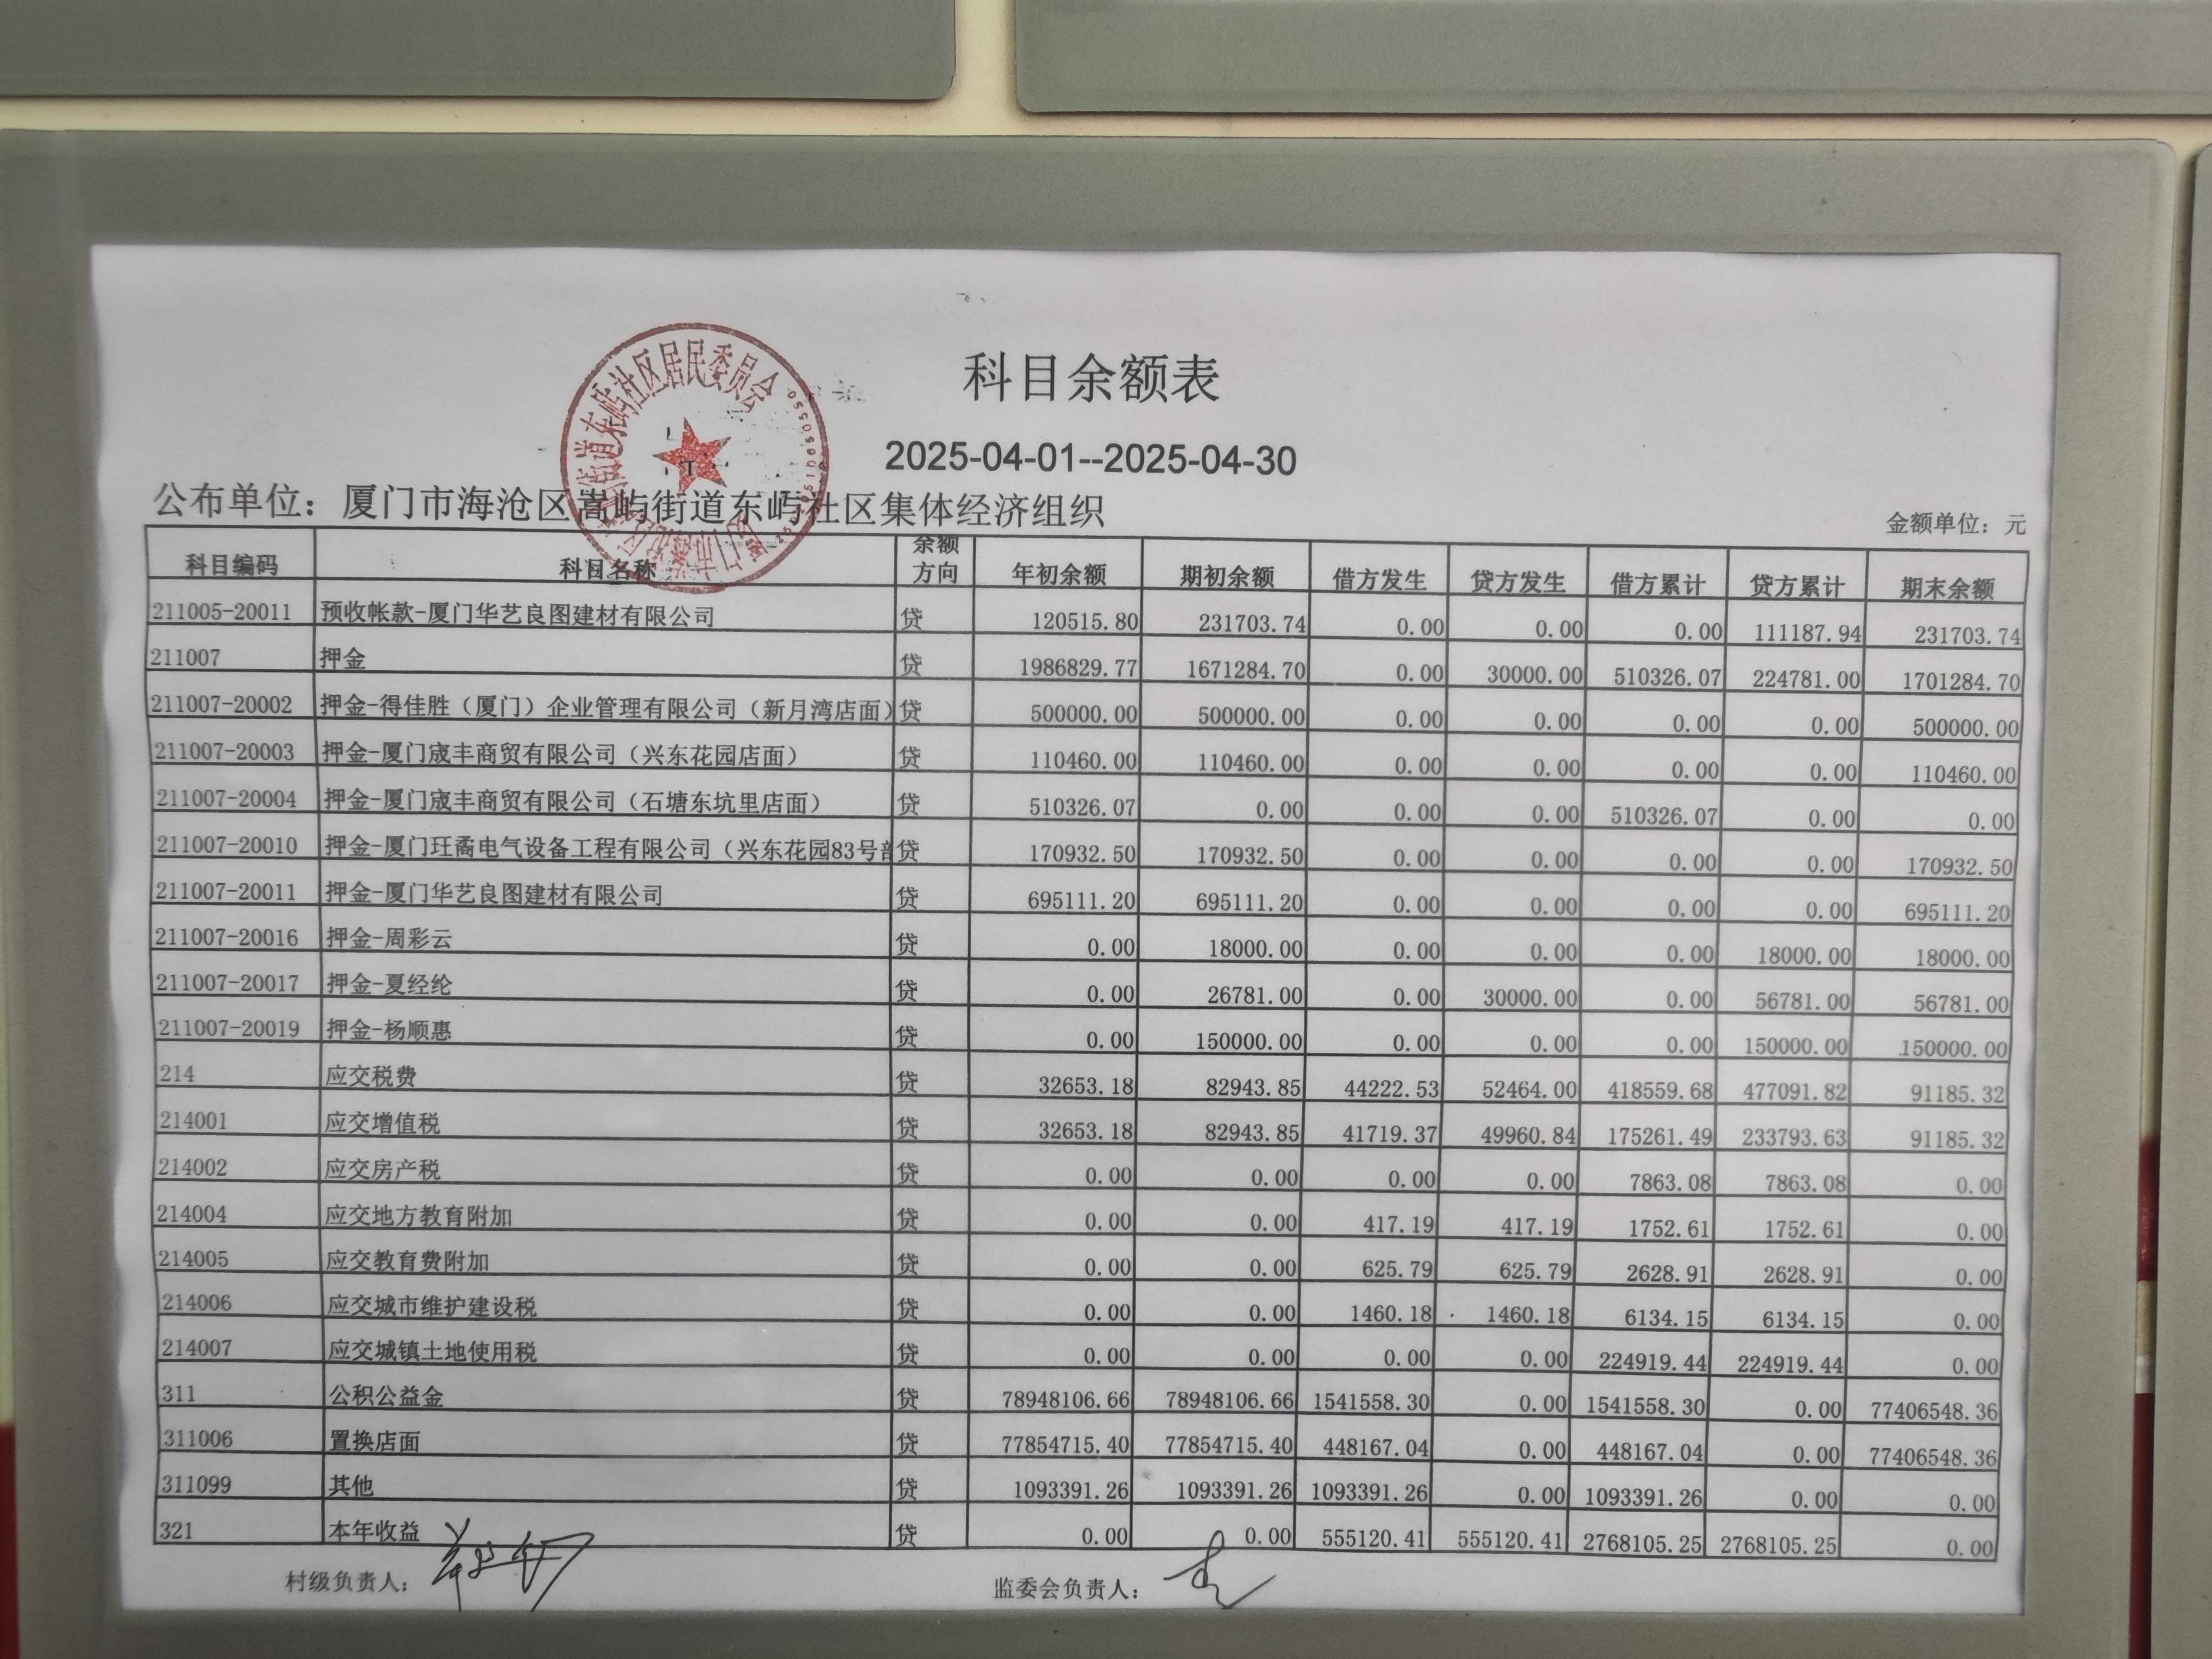 科目余额表
2025-04-01--2025-04-30
公布单位：厦门市海沧区嵩屿街道东屿社区集体经济组织
金额单位：元
科目编码 科目名称 余额方向 年初余额 期初余额 借方发生 贷方发生 借方累计 贷方累计 期末余额
211005-20011 预收帐款-厦门华艺良图建材有限公司 贷 120515.80 231703.74 0.00 0.00 0.00 111187.94 231703.74
211007 押金 贷 1986829.77 1671284.70 0.00 30000.00 510326.07 224781.00 1701284.70
211007-20002 押金-得佳胜（厦门）企业管理有限公司（新月湾店面） 贷 500000.00 500000.00 0.00 0.00 0.00 0.00 500000.00
211007-20003 押金-厦门宬丰商贸有限公司（兴东花园店面） 贷 110460.00 110460.00 0.00 0.00 0.00 0.00 110460.00
211007-20004 押金-厦门宬丰商贸有限公司（石塘东坑里店面） 贷 510326.07 0.00 0.00 0.00 510326.07 0.00 0.00
211007-20010 押金-厦门玨矞电气设备工程有限公司（兴东花园83号 贷 170932.50 170932.50 0.00 0.00 0.00 0.00 170932.50
211007-20011 押金-厦门华艺良图建材有限公司 贷 695111.20 695111.20 0.00 0.00 0.00 0.00 695111.20
211007-20016 押金-周彩云 贷 0.00 18000.00 0.00 0.00 0.00 18000.00 18000.00
211007-20017 押金-夏经纶 贷 0.00 26781.00 0.00 30000.00 0.00 56781.00 56781.00
211007-20019 押金-杨顺惠 贷 0.00 150000.00 0.00 0.00 0.00 150000.00 150000.00
214 应交税费 贷 32653.18 82943.85 44222.53 52464.00 418559.68 477091.82 91185.32
214001 应交增值税 贷 32653.18 82943.85 41719.37 49960.84 175261.49 233793.63 91185.32
214002 应交房产税 贷 0.00 0.00 0.00 0.00 7863.08 7863.08 0.00
214004 应交地方教育附加 贷 0.00 0.00 417.19 417.19 1752.61 1752.61 0.00
214005 应交教育费附加 贷 0.00 0.00 625.79 625.79 2628.91 2628.91 0.00
214006 应交城市维护建设税 贷 0.00 0.00 1460.18 1460.18 6134.15 6134.15 0.00
214007 应交城镇土地使用税 贷 0.00 0.00 0.00 0.00 224919.44 224919.44 0.00
311 公积公益金 贷 78948106.66 78948106.66 1541558.30 0.00 1541558.30 0.00 77406548.36
311006 置换店面 贷 77854715.40 77854715.40 448167.04 0.00 448167.04 0.00 77406548.36
311099 其他 贷 1093391.26 1093391.26 1093391.26 0.00 1093391.26 0.00 0.00
321 本年收益 贷 0.00 0.00 555120.41 555120.41 2768105.25 2768105.25 0.00
村级负责人： 监委会负责人：
街道东屿社区居民委员会